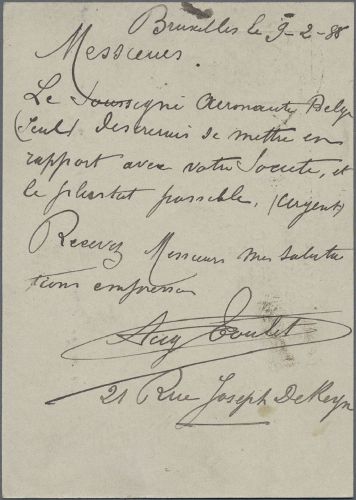 Bruxelles le 9-2-88
Messieurs
Le Soussigné Aéronaute Belge
(Seul) désirerais se mettre en
rapport avec votre Societé, et
le plustot possible, (urgent)
Recevez Messieurs mes saluta
tions empressées
Aug Toulet
21 Rue Joseph De Keyn